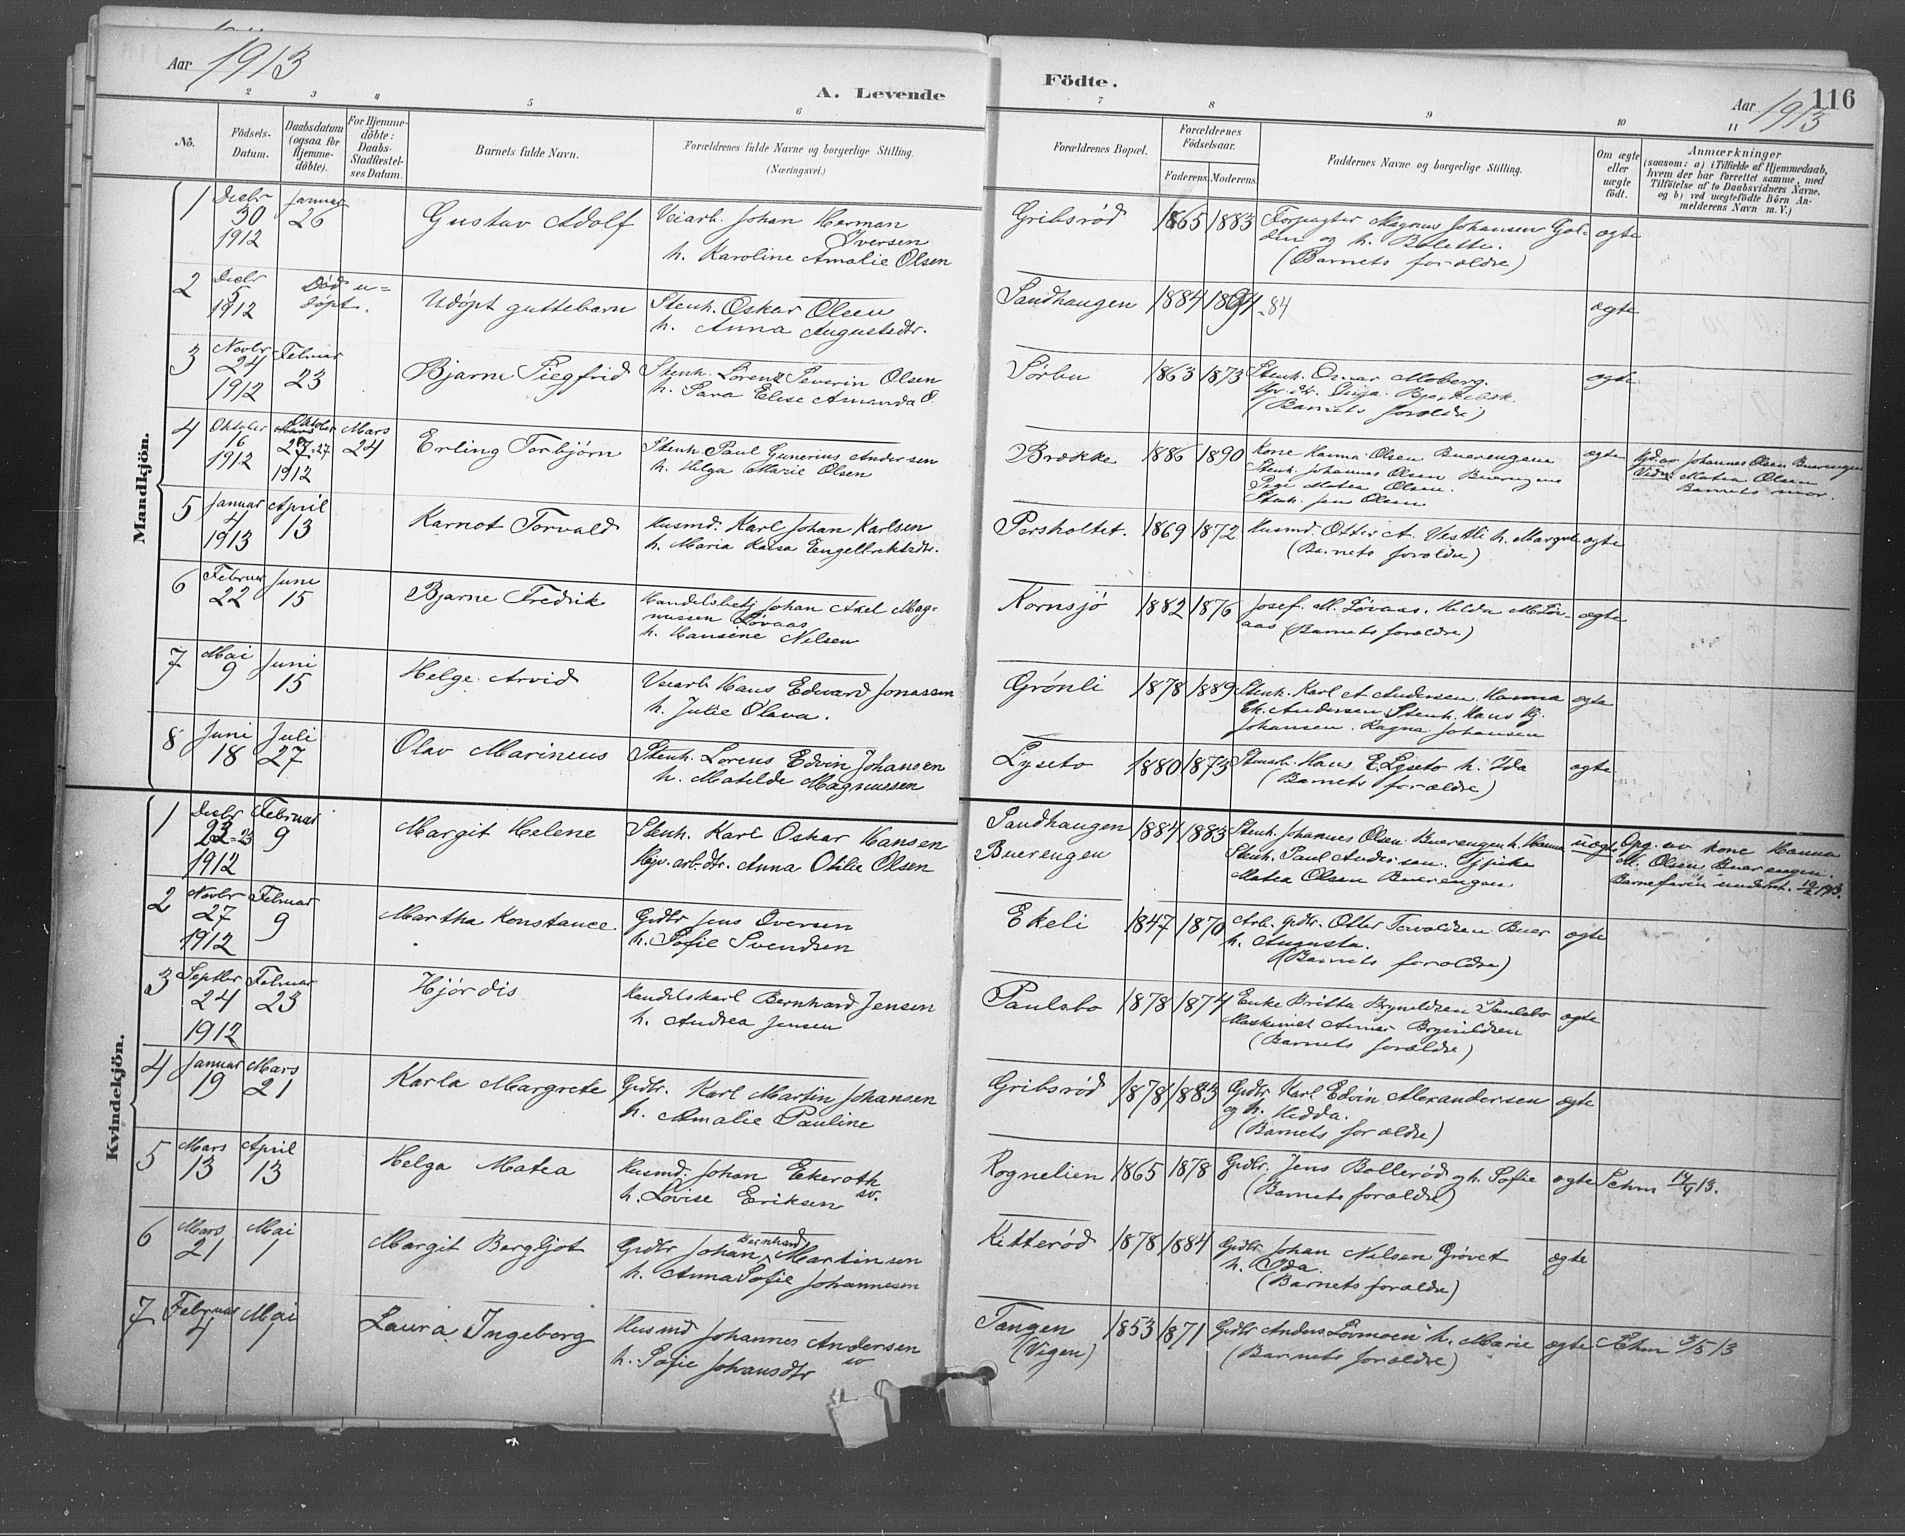 Aar 1913
A. Levende
Födte.
Aar 1913
116
2 3 4 5 6 7 8 9 10 11
No.
Födsels-Datum.
Daabsdatum (ogsaa for Hjemme-döbte).
For Hjemme-döbte: Daabs-Stadfæstel-ses Datum.
Barnets fulde Navn.
Forældrenes fulde Navne og borgerlige Stilling.
(Næringsvei.)
Forældrenes Bopæl.
Forældrenes Födselsaar.
Faderens. Moderens.
Faddernes Navne og borgerlige Stilling.
Om ægte eller uægte födt.
Anmærkninger
(saasom: a) i Tilfælde af Hjemmedaab,
hvem der har forrettet samme, med
Tilföielse af to Daabsvidners Navne,
og b) ved uægtefödte Börn An-
melderens Navn m. V.)
Mandkjön.
1 Decbr 30 1912 Januar 26 Gustav Adolf Veiarb. Johan Herman
Iversen
h. Karoline Amalie Olsen
Gribsrød 1865 1883 Forpagter Magnus Johansen Gol-
den og h. Bolette.
(Barnets forældre) ægte
2 Decbr 5 1912 Død u-
døpt. Udøpt guttebarn Stenh. Oskar Olsen
h. Anna Augustsdtr.
Sandhaugen 1884 1884 84 ægte
3 Novbr 24 1912 Februar 23 Bjarne Siegfrid Stenh. Lorentz Severin Olsen
h. Sara Elise Amanda O.
Sørbu 1863 1873 Stenh. Moberg.
(Barnets foreldre) ægte
4 Oktober 16 1912 Oktober 27=27 1912 Mars 24 Erling Torbjørn Stenh. Paul Gunerius Andersen
h. Helga Marie Olsen
Brække 1886 1890 Kone Hanna Olsen Buerengene
Stenh. Johannes Olsen Buerengene
Pige Matea Olsen.
Stenh. Jen Olsen
ægte Hjd. av Johannes Olsen Buerengen
Vidn: Matea Olsen
Barnets mor.
5 Januar 4 1913 April 13 Karnot Torvald Husmd. Karl Johan Karlsen
h. Maria Kaisa Engelbrektsdtr.
Persholtet. 1869 1872 Husmd. Otter A. Vestli h. Margrete
(Barnets foreldre) ægte
6 Februar 22 Juni 15 Bjarne Fredrik Handelsbetj Johan Axel Mag-
nussen Løvaas
h. Hansine Nilsen
Kornsjø 1882 1876 Josef. M. Løvaas. Hilda M Løv-
aas (Barnets foreldre) ægte
7 Mai 9 Juni 15 Helge Arvid Veiarb Hans Edvard Jonassen
h. Julie Olava.
Grønli 1878 1889 Stenh. Karl A. Andersen. Hanna
Andersen, Stenh. Hans Kj.
Johansen. Ragna Johansen ægte
8 Juni 18 Juli 27 Olav Marineus Stenh. Lorens Edvin Johansen
h. Matilde Magnussen
Lyseto 1880 1873 Stenarb. Hans E. Lyseto h. Ida
(Barnets forældre) ægte
Kvindekjön.
1 Decbr 23=23 1912 Februar 9 Margit Helene Stenh. Karl Oskar Hansen
Hjv. arb. dtr. Anna Otilie Olsen
Sandhaugen
Buerengen
1884 1883 Stenh. Johannes Olsen Buerengen h. Hanna
Stenh. Paul Andersen. Tj. pike
Matea Olsen Buerengen
uægte Opg. av kone Hanna
M. Olsen Buerengen.
Barnefaren underst. 10/2 1913.
2 Novbr 27 1912 Februar 9 Martha Konstance. Grdbr Jens Iversen
h. Sofie Svendsen
Ekeli 1847 1870 Arb. grdbr. Otter Torvaldsen Buer
h. Augusta.
(Barnets foreldre) ægte
3 Septbr 24 1912 Februar 23 Hjørdis Handelskarl Bernhard Jensen
h. Andrea Jensen
Paulsbo 1878 1874 Enke Britta Brynildsen Paulsbo
Maskinist Annar Brynildsen
(Barnets forældre) ægte
4 Januar 19 Mars 21 Karla Margrete Grdbr. Karl Martin Johansen
h. Amalie Pauline
Gribsrød 1878 1883 Grdbr Karl Edvin Alexandersen
og h. Hedda.
(Barnets forældre) ægte
5 Mars 13 April 13 Helga Matea Husmd. Johan Ekeroth
h. Lovise Eriksen sv.
Rognelien 1865 1878 Grdbr. Jens Bollerød og h. Sofie
(Barnets foreldre) ægte Sehm 14/9 13.
6 Mars 21 Mai 1 Margit Bergljot Grdbr Johan Bernhard Martinsen
h. Anna Sofie Johannesen
Kitterød 1878 1884 Grdbr Johan Nilsen Grøvet
h. Ida
(Barnets foreldre) ægte
7 Februar 4 Mai 1 Laura Ingeborg Husmd Johannes Andersen
h. Sofie Johansdtr sv
Tangen
(Vigen)
1853 1871 Grdbr Anders Lovmoen h. Marie
(Barnets foreldre) ægte Sehm 3/5 13